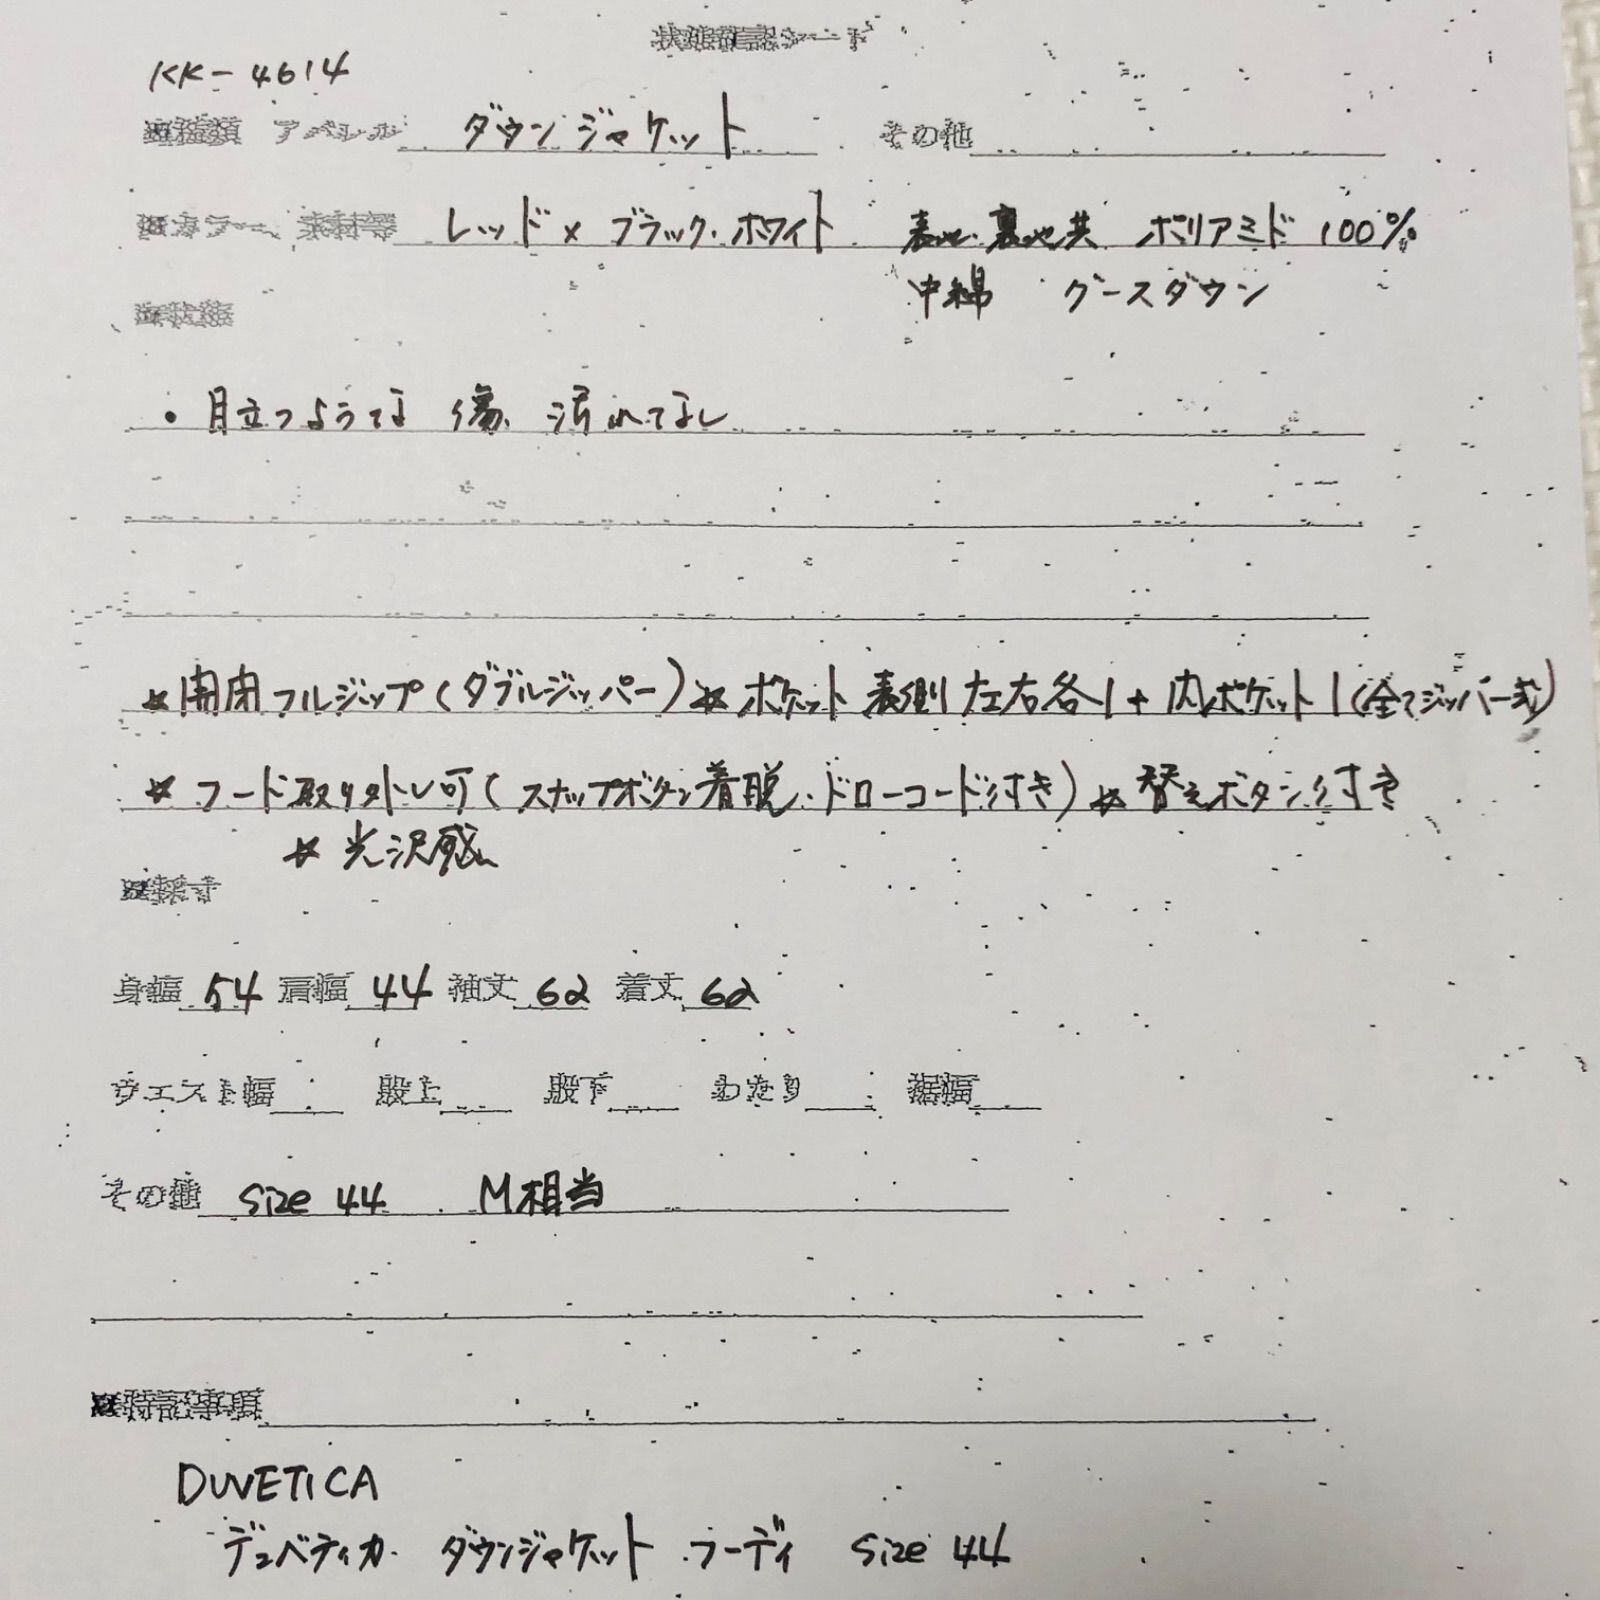 状態確認シート
KK-4614
■種類 アパレル ダウンジャケット その他
■カラー、素材等 レッド×ブラック・ホワイト 表地・裏地共 ポリアミド 100%
中綿 グースダウン
■状態
・目立つような 傷、汚れてなし
☆開閉フルジップ(ダブルジッパー)☆ポケット 表側 左右各1+内ポケット1(全てジッパー式)
☆フード取り外し可(スナップボタン着脱・ドローコード付き)☆替えボタン付き
☆光沢感
■採寸
身幅 54 肩幅 44 袖丈 62 着丈 62
ウエスト幅 股上 股下 わたり 裾幅
その他 size 44 M相当
■特記事項
DUVETICA
デュベティカ ダウンジャケット フーディ size 44